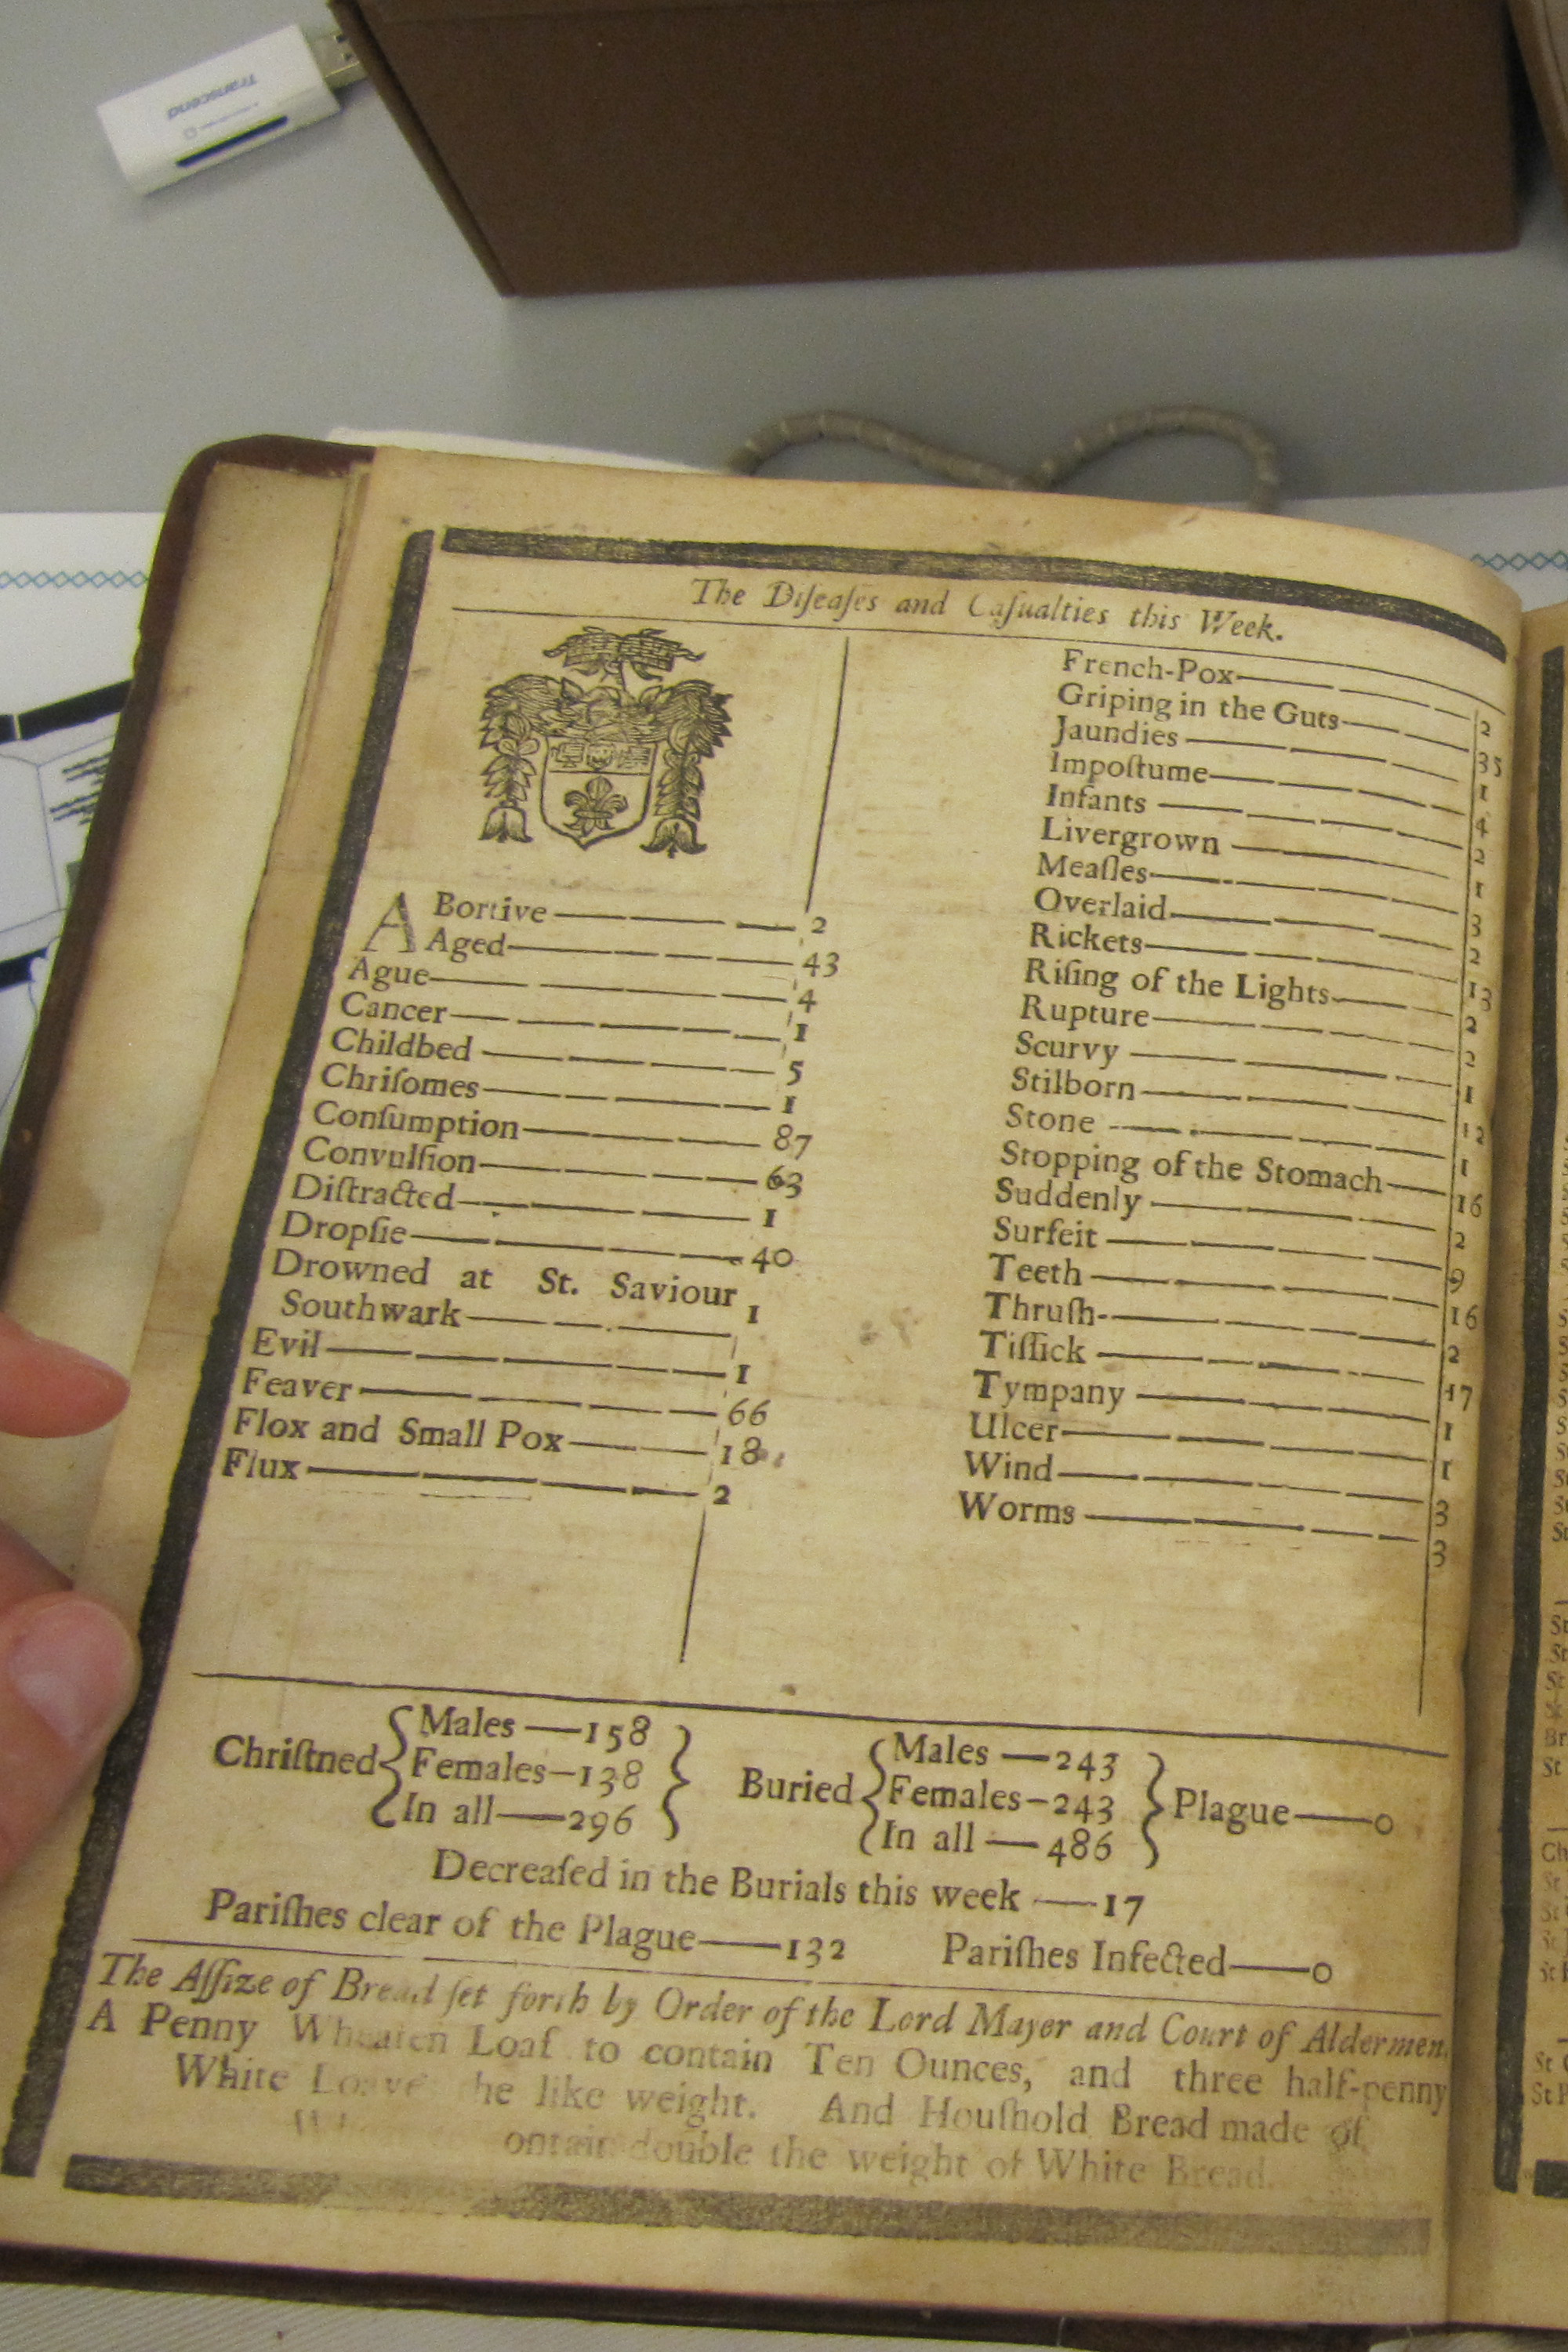 Transcend
The Diſeaſes and Caſualties this Week.
ABortive 2
Aged 43
Ague 4
Cancer 1
Childbed 5
Chriſomes 1
Conſumption 87
Convulſion 63
Diſtracted 1
Dropſie 40
Drowned at St. Saviour
Southwark 1
Evil 1
Feaver 66
Flox and Small Pox 18
Flux 2
French-Pox 2
Griping in the Guts 35
Jaundies 1
Impoſtume 4
Infants 2
Livergrown 1
Meaſles 3
Overlaid 2
Rickets 13
Riſing of the Lights 2
Rupture 2
Scurvy 1
Stilborn 12
Stone 1
Stopping of the Stomach 16
Suddenly 2
Surfeit 9
Teeth 16
Thruſh 2
Tiſſick 17
Tympany 1
Ulcer 1
Wind 3
Worms 3
Chriſtned
Males 158
Females 138
In all 296
Buried
Males 243
Females 243
In all 486
Plague 0
Decreaſed in the Burials this week 17
Pariſhes clear of the Plague 132 Pariſhes Infected 0
The Aſſize of Bread ſet forth by Order of the Lord Mayor and Court of Aldermen.
A Penny Wheaten Loaf to contain Ten Ounces, and three half-penny
White Loaves the like weight. And Houſhold Bread made of
double the weight of White Bread.